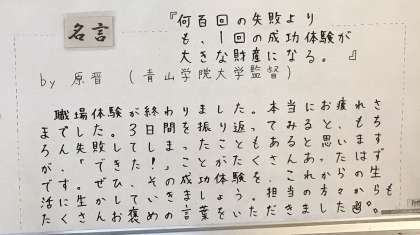 名言
『何百回の失敗より
も、1回の成功体験が
大きな財産になる。』
by 原晋 (青山学院大学監督)
職場体験が終わりました。本当にお疲れさ
までした。3日間を振り返ってみると、もち
ろん失敗してしまったこともあると思います
が、「できた!」ことがたくさんあったはず
です。ぜひ、その成功体験を、これからの生
活に生かしていきましょう。担当の方々からも
たくさんお褒めの言葉をいただきました